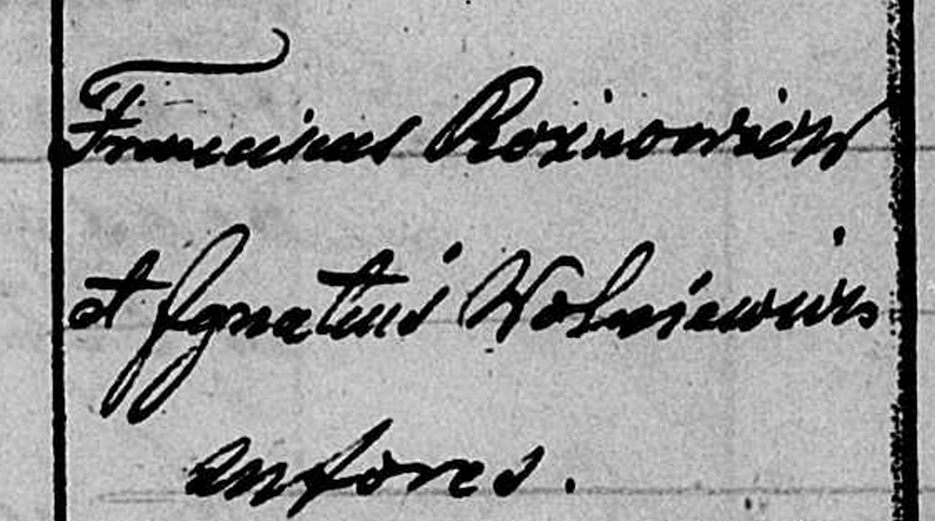 Franciscus Roxinowicz
et Ignatius Wolniewicz